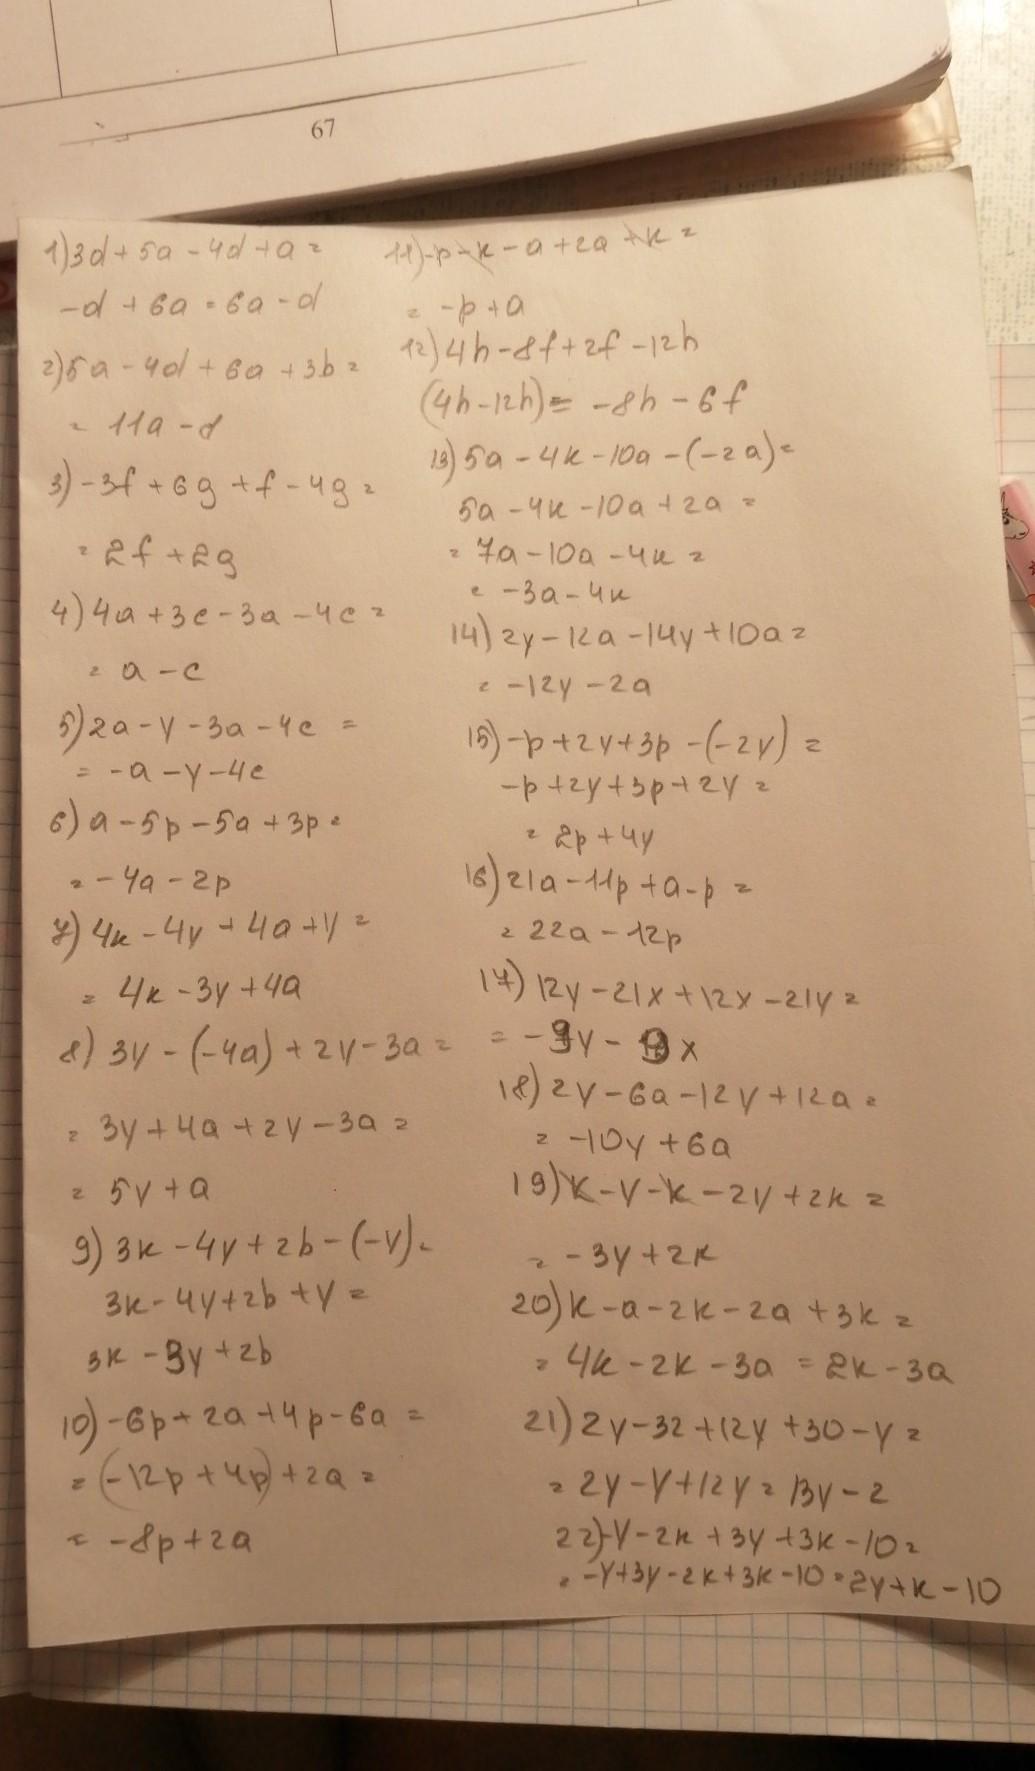 67
1) 3d + 5a - 4d + a =
-d + 6a = 6a - d
2) 5a - 4d + 6a + 3b =
= 11a - d
3) -3f + 6g + f - 4g =
= 2f + 2g
4) 4a + 3c - 3a - 4c =
= a - c
5) 2a - y - 3a - 4c =
= -a - y - 4c
6) a - 5p - 5a + 3p =
= -4a - 2p
7) 4k - 4y + 4a + y =
= 4k - 3y + 4a
8) 3y - (-4a) + 2y - 3a =
= 3y + 4a + 2y - 3a =
= 5y + a
9) 3k - 4y + 2b - (-y) =
3k - 4y + 2b + y =
3k - 3y + 2b
10) -6p + 2a + 4p - 6a =
= (-12p + 4p) + 2a =
= -8p + 2a
11) -p - k - a + 2a + k =
= -p + a
12) 4h - 8f + 2f - 12h
(4h - 12h) = -8h - 6f
13) 5a - 4k - 10a - (-2a) =
5a - 4k - 10a + 2a =
= 7a - 10a - 4k =
= -3a - 4k
14) 2y - 12a - 14y + 10a =
= -12y - 2a
15) -p + 2y + 3p - (-2y) =
-p + 2y + 3p + 2y =
= 2p + 4y
16) 21a - 11p + a - p =
= 22a - 12p
17) 12y - 21x + 12x - 21y =
= -9y - 9x
18) 2y - 6a - 12y + 12a =
= -10y + 6a
19) k - y - k - 2y + 2k =
= -3y + 2k
20) k - a - 2k - 2a + 3k =
= 4k - 2k - 3a = 2k - 3a
21) 2y - 32 + 12y + 30 - y =
= 2y - y + 12y = 13y - 2
22) -y - 2k + 3y + 3k - 10 =
= -y + 3y - 2k + 3k - 10 = 2y + k - 10